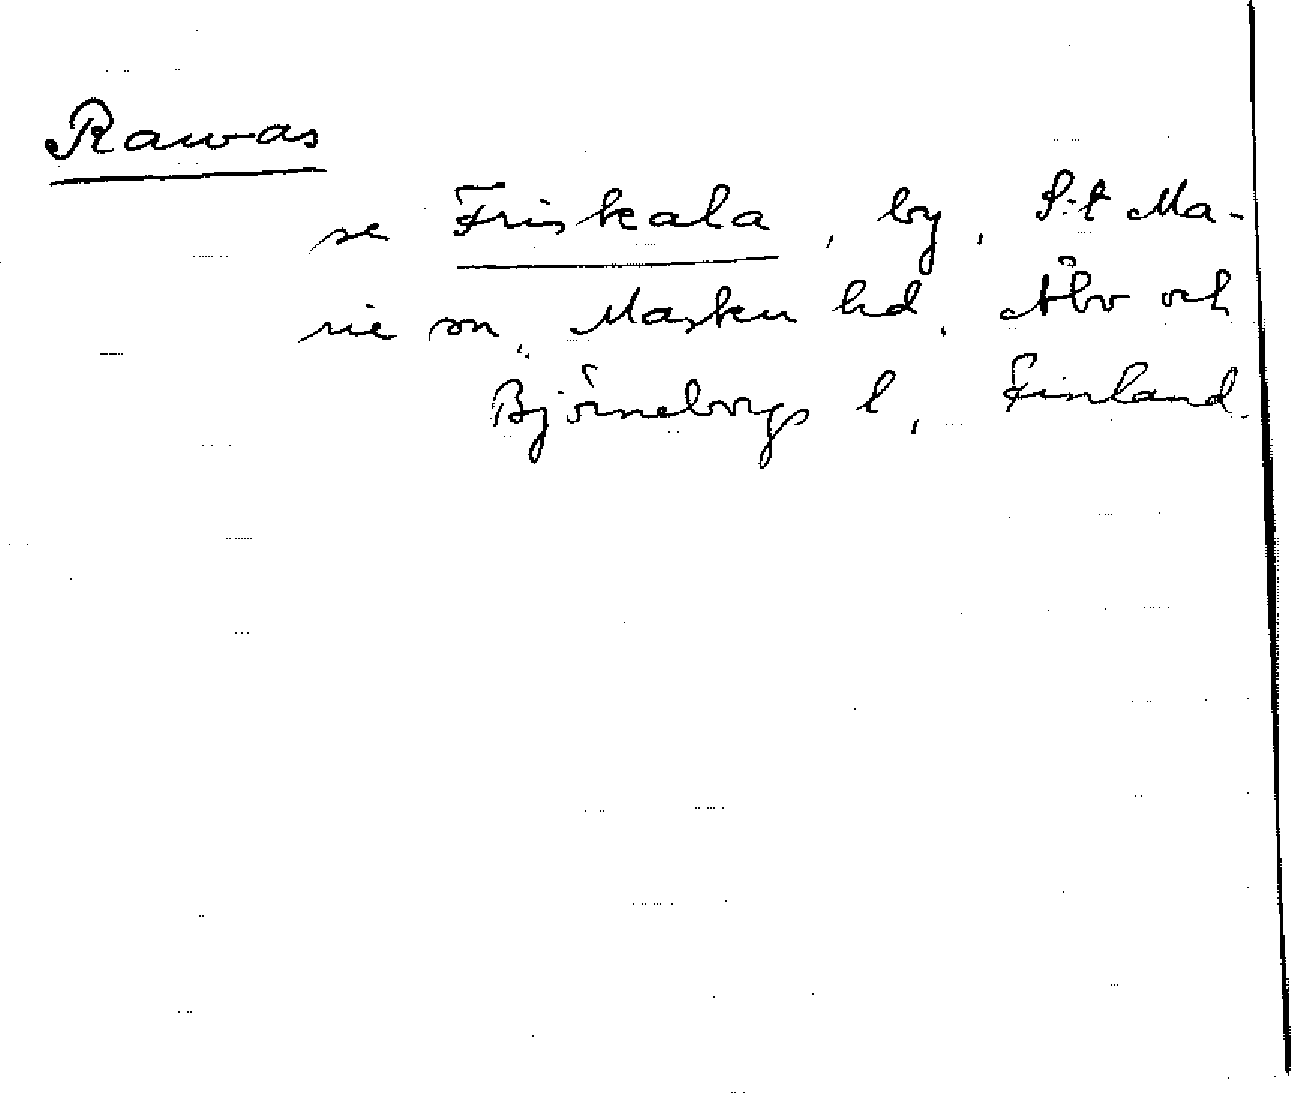 Rawas
se Friskala, by, S:t Ma-
rie sn, Masku hd, Åbo och
Björneborgs l, Finland.